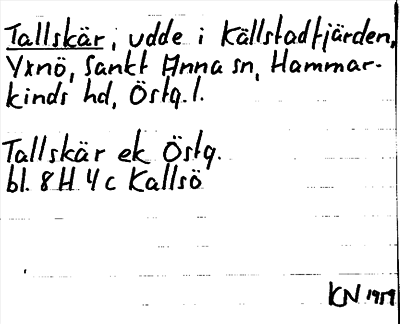 Tallskär, udde i Källstadfjärden,
Yxnö, Sankt Anna sn, Hammar-
kinds hd, Östg. l.
Tallskär ek Östg.
bl. 8H 4c Kallsö
KN 1959